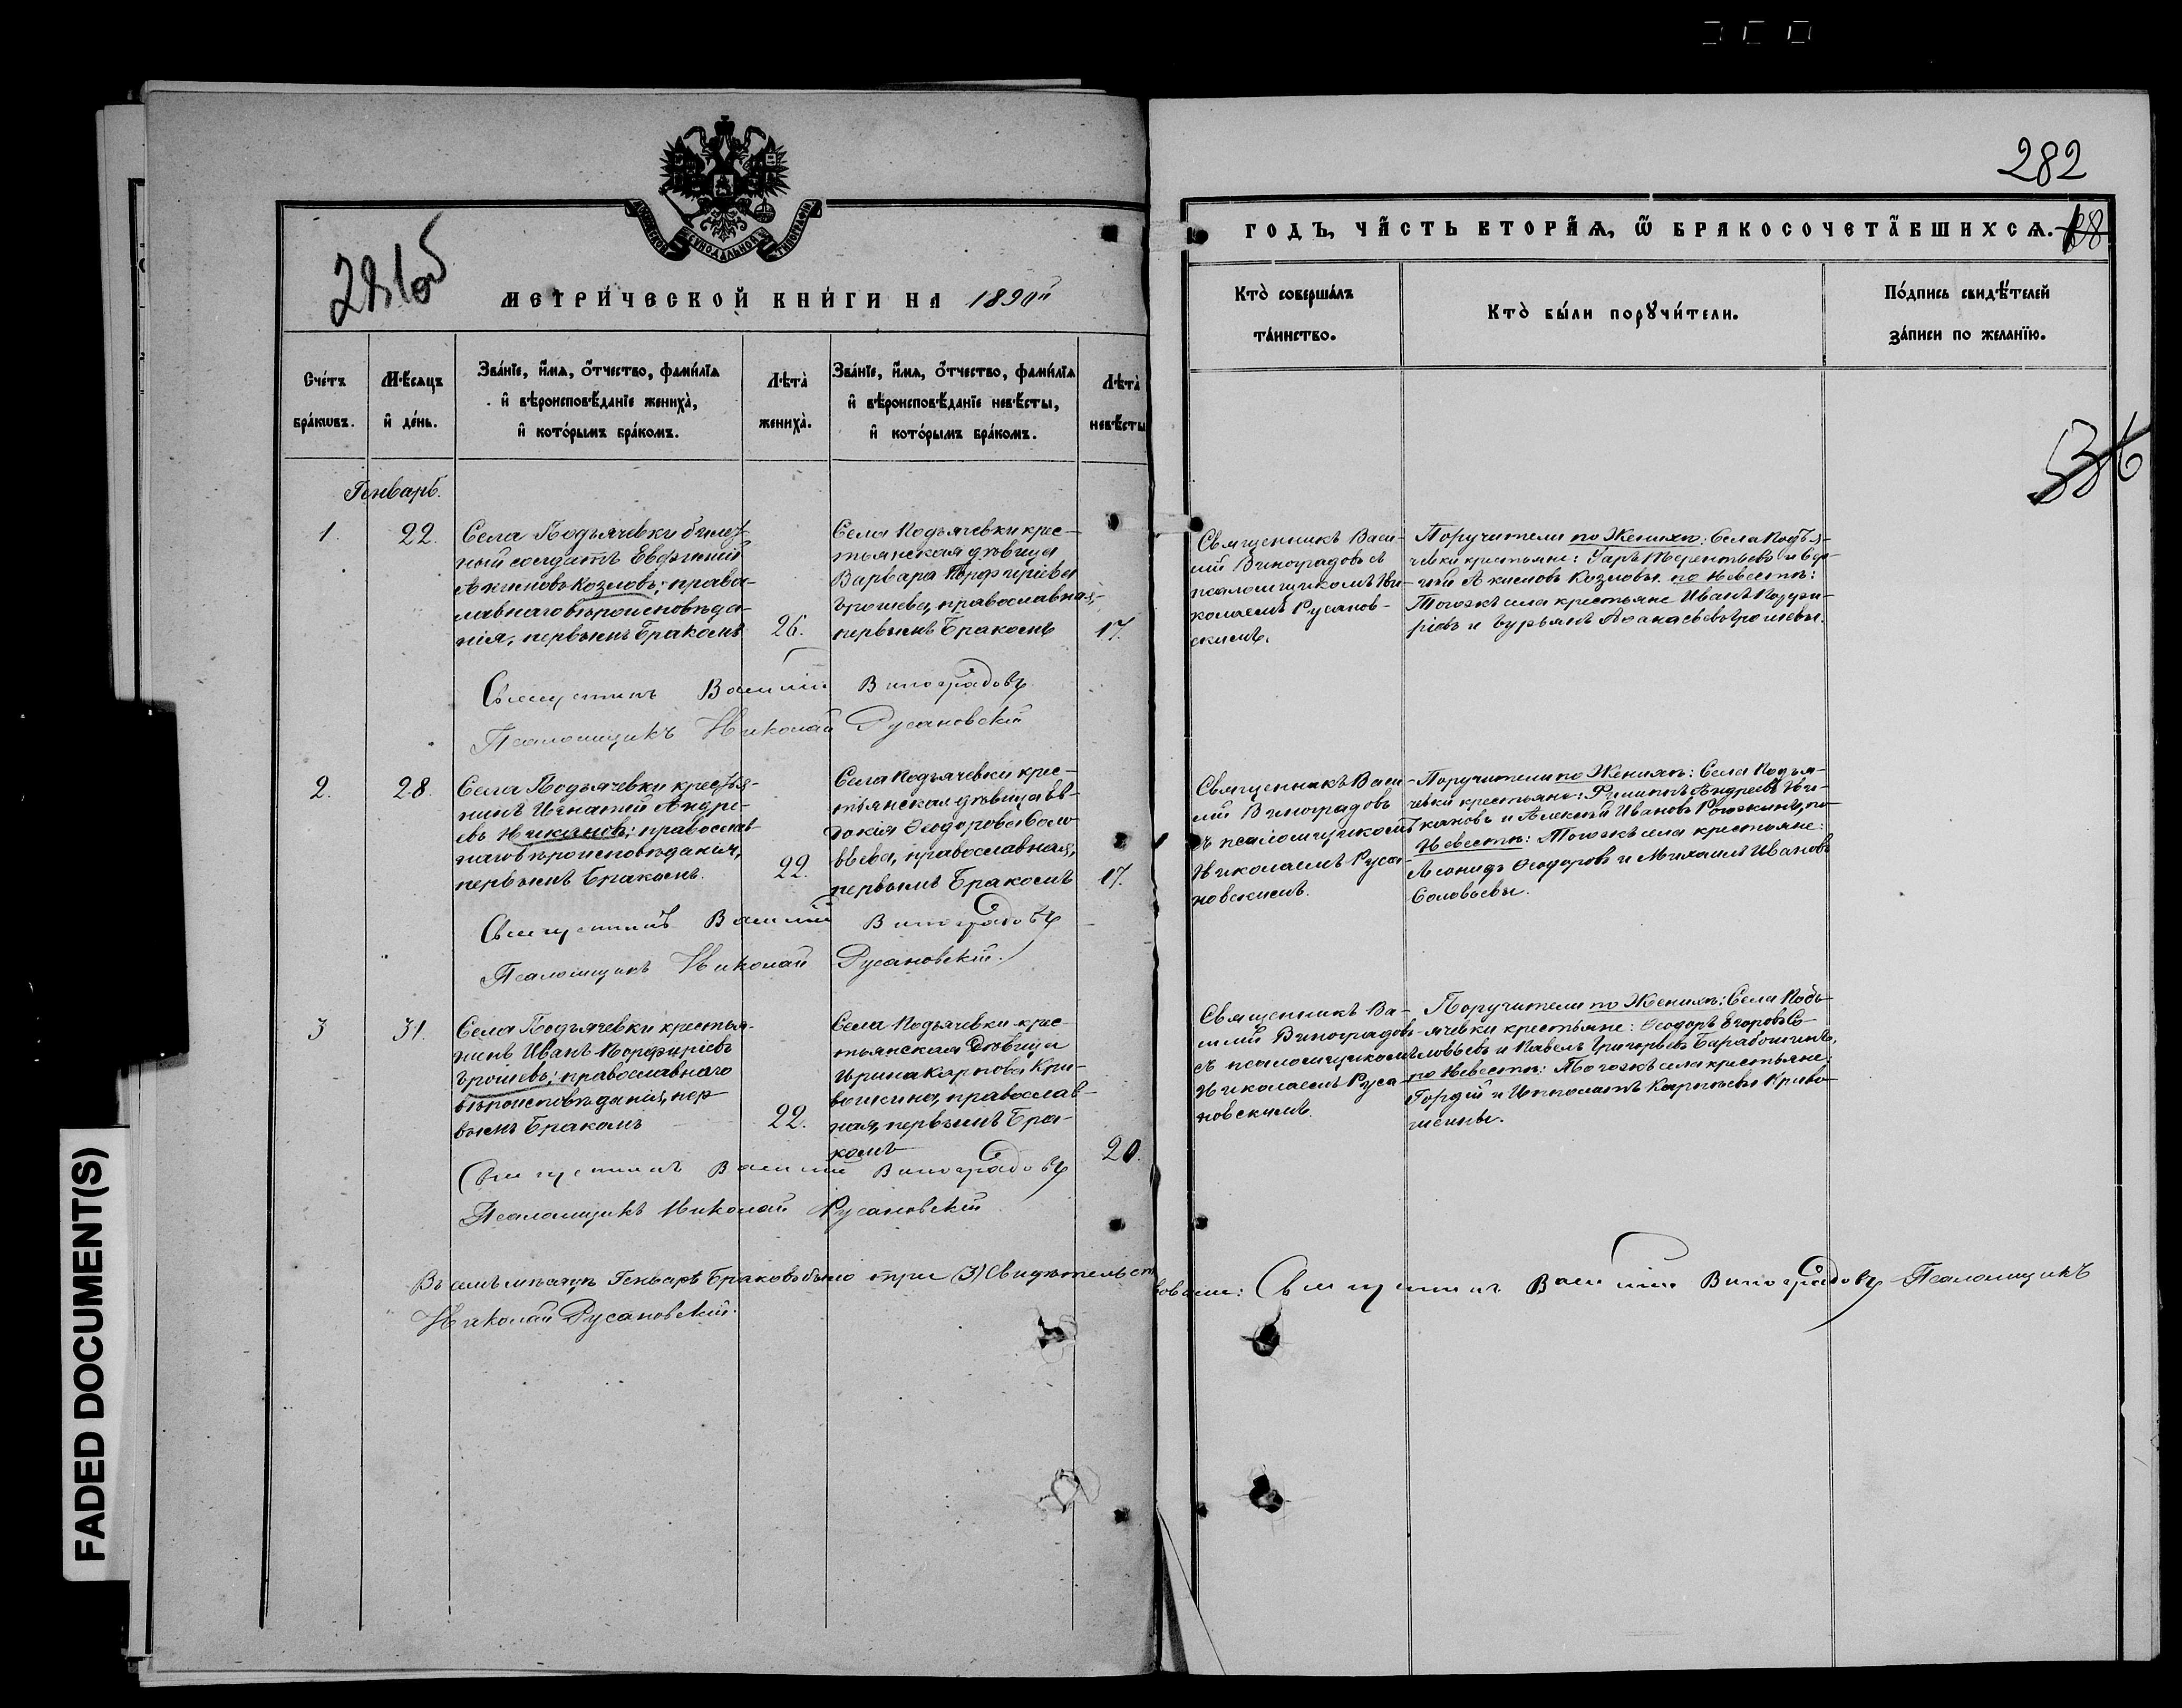 282
281об
МОСКОВСКОЙ СѴНОДАЛЬНОЙ ТИПОГРАФІИ
МЕТРИЧЕСКОЙ КНИГИ НА 1890й
ГОДЪ, ЧАСТЬ ВТОРАЯ, Ѽ БРАКОСОЧЕТАВШИХСЯ.
Счетъ браковъ.
Мѣсяцъ и день.
Званіе, имя, отчество, фамилія и вѣроисповѣданіе жениха, и которымъ бракомъ.
Лѣта жениха.
Званіе, имя, отчество, фамилія и вѣроисповѣданіе невѣсты, и которымъ бракомъ.
Лѣта невѣсты
Кто совершалъ таинство.
Кто были поручители.
Подпись свидѣтелей записи по желанію.
536
Генварь.
1.
22.
Села Подъячевки билет-
ный солдатъ Евфимій
Акимовъ Козловъ; право-
славнаго вѣроисповѣда-
нія, первымъ бракомъ
26.
Села Подъячевки крес-
тьянская дѣвица
Варвара Порфиріева
Ерошева, православная,
первымъ бракомъ
17.
Священникъ Васи-
лій Виноградовъ съ
псаломщикомъ Ни-
колаемъ Русанов-
скимъ.
Поручители по Женихѣ: Села Подъя-
чевки крестьяне: Терентьевъ и
Акимовъ Козловы. по Невѣстѣ:
Тогожъ села крестьяне Иванъ Порфи-
ріевъ и Гурьянъ Аѳанасьевъ Ерошевы.
Священникъ Василій Виноградовъ
Псаломщикъ Николай Русановскій
2.
28.
Села Подъячевки крестья-
нинъ Игнатій Андре-
евъ Никановъ; православ-
наго вѣроисповѣданія,
первымъ бракомъ.
22.
Села Подъячевки крес-
тьянская дѣвица Ев-
докія Ѳеодорова Соло-
вьева, православная,
первымъ бракомъ
17.
Священникъ Васи-
лій Виноградовъ
съ псаломщикомъ
Николаемъ Руса-
новскимъ.
Поручители по Женихѣ: Села Подъя-
чевки крестьяне: Филиппъ Андреевъ Ни-
кановъ и Алексѣй Ивановъ Рогожкинъ, по
Невѣстѣ: Тогожъ села крестьяне:
Леонидъ Ѳеодоровъ и Михаилъ Ивановъ
Соловьевы.
Священникъ Василій Виноградовъ
Псаломщикъ Николай Русановскій.
3
31.
Села Подъячевки крестья-
нинъ Иванъ Порфиріевъ
Ерошевъ; православнаго
вѣроисповѣданія, пер-
вымъ бракомъ
22.
Села Подъячевки крес-
тьянская дѣвица
Ирина Карпова Кри-
вошеина, православ-
ная, первымъ бра-
комъ
20.
Священникъ Ва-
силій Виноградовъ
съ псаломщикомъ
Николаемъ Руса-
новскимъ.
Поручители по Женихѣ: Села Подъ-
ячевки крестьяне: Ѳеодоръ Егоровъ Со-
ловьевъ и Павелъ Григорьевъ Барабошинъ,
по Невѣстѣ: Тогожъ села крестьяне:
Гордій и Ипполитъ Карповы Криво-
шеины.
Священникъ Василій Виноградовъ
Псаломщикъ Николай Русановскій
Въ семъ мѣсяцѣ Генварѣ браковъ было три (3) Свидѣтельствовали: Священникъ Василій Виноградовъ Псаломщикъ
Николай Русановскій.
FADED DOCUMENT(S)